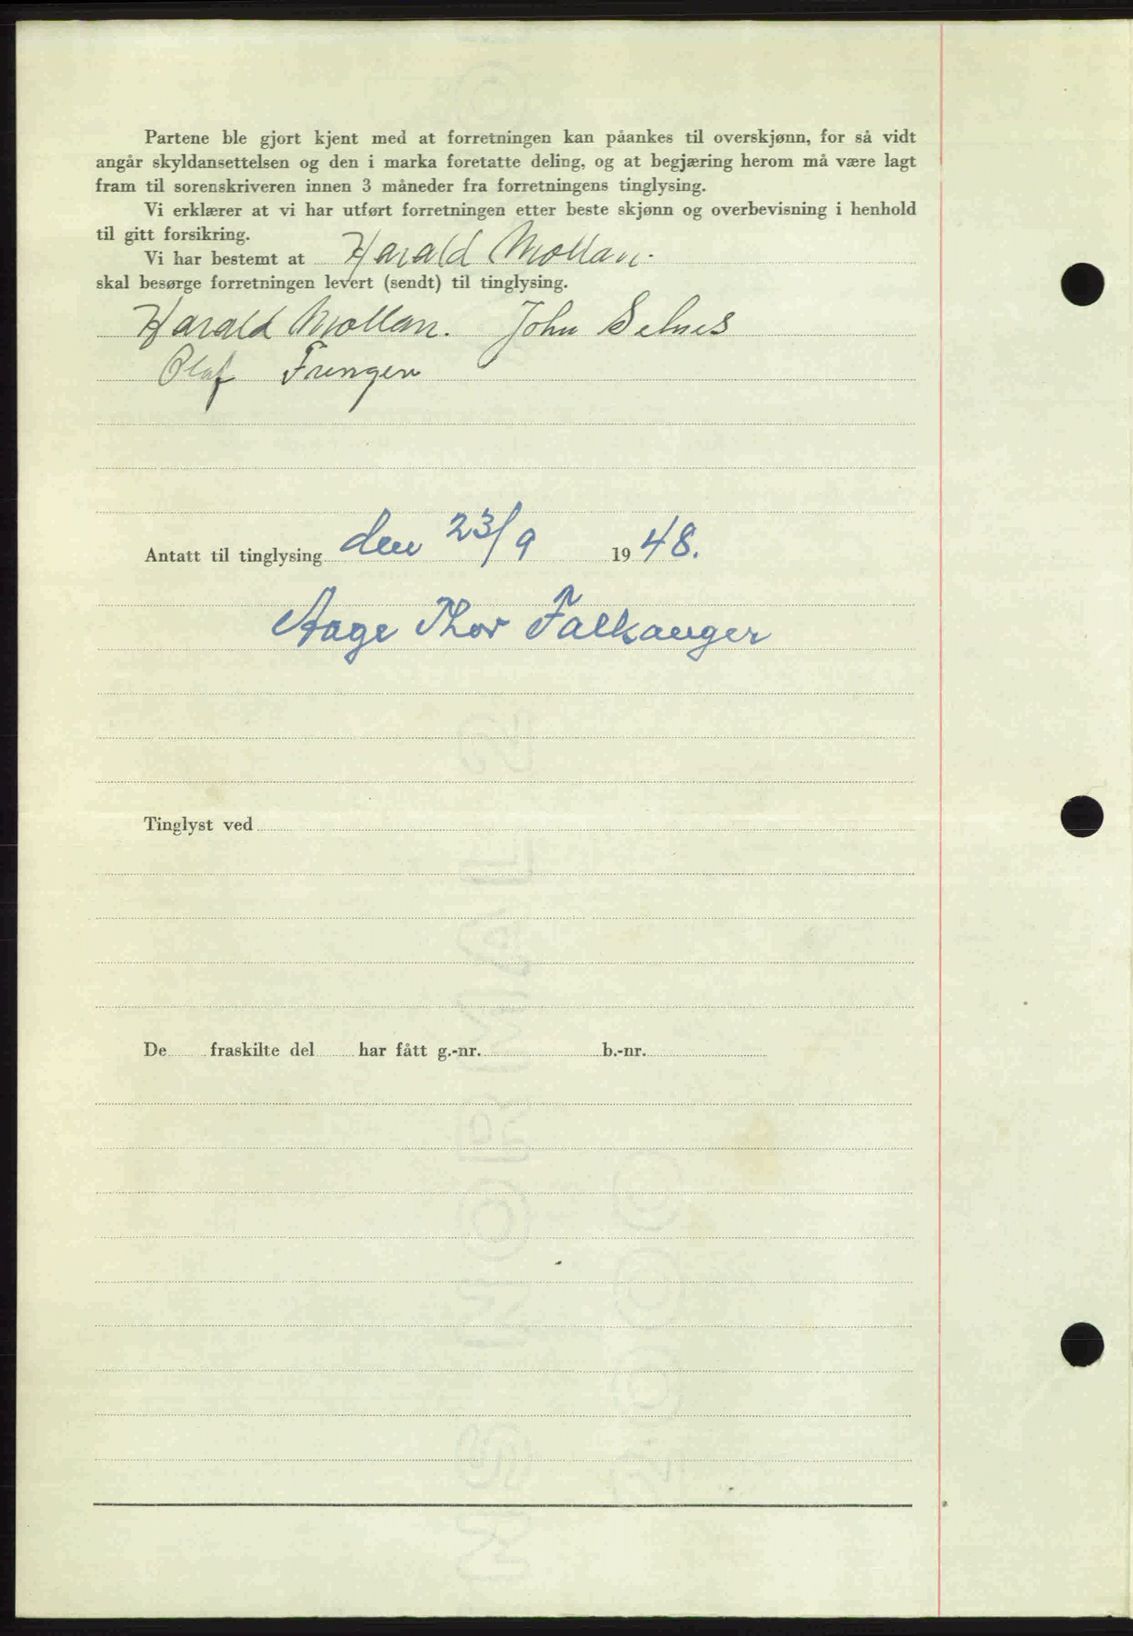 Partene ble gjort kjent med at forretningen kan påankes til overskjønn, for så vidt
angår skyldansettelsen og den i marka foretatte deling, og at begjæring herom må være lagt
fram til sorenskriveren innen 3 måneder fra forretningens tinglysing.
Vi erklærer at vi har utført forretningen etter beste skjønn og overbevisning i henhold
til gitt forsikring.
Vi har bestemt at Harald Mollan.
skal besørge forretningen levert (sendt) til tinglysing.
Harald Mollan. John Selnes
Olaf
Antatt til tinglysing den 23/9 1948.
Aage Thor Falkanger
Tinglyst ved
De fraskilte del har fått g.-nr. b.-nr.